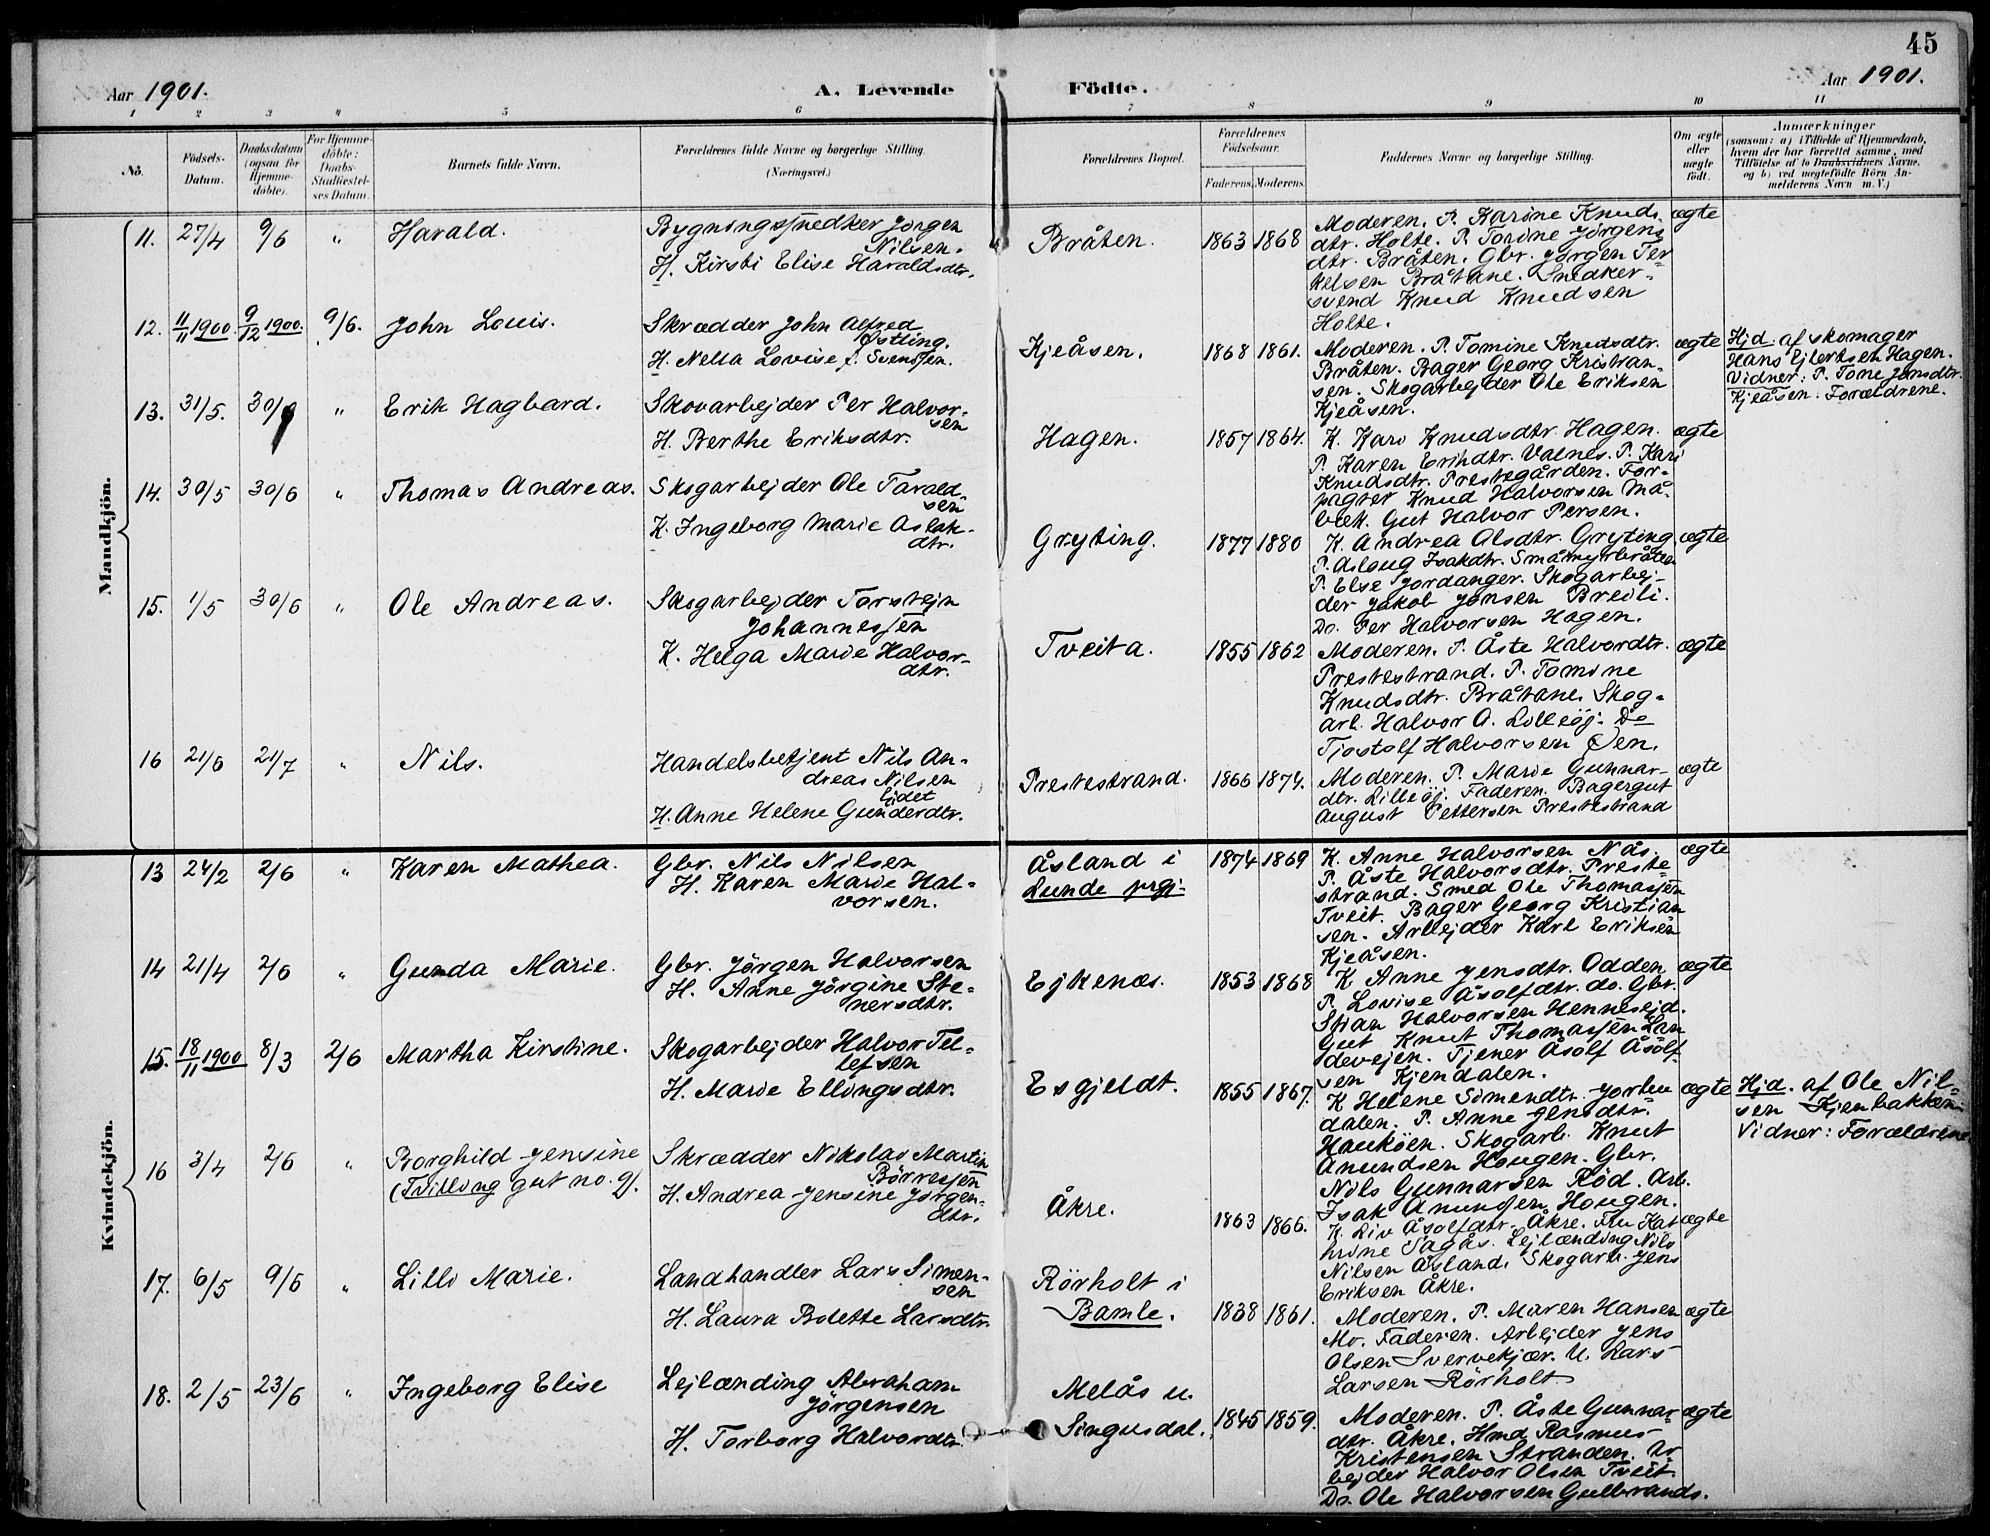 45
Aar 1901. A. Levende Födte. Aar 1901.
1 2 3 4 5 6 7 8 9 10 11
No. Födsels-Datum. Daabsdatum (ogsaa for Hjemme-döbte). For Hjemme-döbte: Daabs-Stadfæstel-ses Datum. Barnets fulde Navn. Forældrenes fulde Navne og borgerlige Stilling. (Næringsvei.) Forældrenes Bopæl. Forældrenes Födselsaar. Faderens. Moderens. Faddernes Navne og borgerlige Stilling. Om ægte eller uægte födt. Anmærkninger
(saasom: a) i Tilfælde af Hjemmedaab, hvem der har forrettet samme, med Tilföielse af to Daabsvidners Navne. og b) ved uægtefödte Börn An-melderens Navn m. V.)
Mandkjön.
11. 27/4 9/6 " Harald.
Bygningssnedker Jörgen
Nilsen.
H. Kirsti Elise Haraldsdtr.
Bråten. 1863 1868
Moderen. P. Karine Knuds-
dtr. Holte. P. Torine Jörgens
dtr. Bråten. Gbr. Jörgen Ter-
kelsen Bråtane. Snedker-
svend Knud Knudsen
Holte.
ægte
12. 11/11 1900. 9/12 1900. 9/6. John Louis.
Skrædder John Alfred
Østling.
H. Nella Lovise f. Svenssen.
Kjeåsen. 1868 1861.
Moderen. P. Tomine Knudsdtr.
Bråten. Bager Georg Kristian-
sen. Skogarbejder Ole Eriksen
Kjeåsen.
ægte
Hjd. af skomager
Hans Ejlertsen Hagen.
Vidner: P. Tone Jensdtr.
Kjeåsen. Forældrene.
13. 31/5. 30/6 " Erik Hagbard.
Skovarbejder Per Halvor-
sen
H. Berthe Eriksdtr.
Hagen. 1857 1864.
K. Kari Knudsdtr. Hagen.
P. Karen Erikdtr. Valnes. P. Kari
Knudsdtr. Prestegården. For-
pagter Knud Halvorsen Må-
bæk. Gut Halvor Persen.
ægte
14. 30/5 30/6 " Thomas Andreas.
Skogarbejder Ole Tarald-
sen
K. Ingeborg Marie Aslak-
dtr.
Gryting. 1877 1880
K. Andrea Olsdtr. Gryting
P. Aslaug Isakdtr. Småmyrbråten
P. Else Jordanger. Skogarbej-
der Jakob Jonsen Breili.
Do. Per Halvorsen Hagen.
ægte
15. 1/5 30/6 " Ole Andreas.
Skogarbejder Torstejn
Johannessen
K. Helga Marie Halvor-
dtr.
Tveita. 1855 1862
Moderen. P. Åste Halvordtr.
Prestestrand. P. Tomine
Knudsdtr. Bråtane. Skog-
arb. Halvor A. Lilleöj. Do
Tjostolf Halvorsen Öen.
ægte
16 21/6 21/7 " Nils.
Handelsbetjent Nils An-
dreas Nilsen
Ejdet
H. Anne Helene Gunderdtr.
Prestestrand. 1866 1874.
Moderen. P. Marie Gunnar-
dtr. Lilleöj. Faderen. Bagergut
August Pettersen Prestestrand
ægte
Kvindekjön.
13 24/2 2/6 " Karen Mathea.
Gbr. Nils Nilsen
H. Karen Marie Hal-
vorsen.
Åsland i
Lunde prgj.
1874 1869
K. Anne Halvorsen Nås.
P. Åste Halvorsdtr. Preste-
strand. Smed Ole Thomassen
Tveit. Bager Georg Kristian
sen. Arbejder Karl Eriksen
Kjeåsen.
ægte
14 21/4 2/6 " Gunda Marie.
Gbr. Jörgen Halvorsen
H. Anne Jörgine Ste-
nersdtr.
Ejkenæs. 1853 1868
K Anne Jensdtr. Odden
P. Lovise Åsolfdtr. do. Gbr.
Stian Halvorsen Hennesejd.
Gut Knut Thomassen Lan
devejen. Tjener Åsolf Åsolf-
sen Kjendalen.
ægte
15. 18/11 1900 8/3 2/6 Martha Kirstine.
Skogarbejder Halvor Tel-
lefsen
H. Marie Ellingsdtr.
Esgjeldt. 1855 1867.
K Helene Simendtr. Jorken
dalen. P. Anne Jensdtr.
Hauköen. Skogarb. Knut
Amundsen Hougen. Gbr.
Nils Gunnarsen Röd. Arb.
Isak Amundsen Hougen.
ægte
Hjd. af Ole Nil-
sen Kjenbakken
Vidner: Forældrene
16 3/4 2/6 " Borghild Jensine
(Tvilling gut no. 9).
Skrædder Nikolai Martin
Börresen
H. Andrea Jensine Jörgen-
dtr.
Åkre. 1863 1866.
K. Liv Åsolfdtr. Åkre. Fru Kat
hrine Tagås. Lejlænding Nils
Nilsen Åsland. Skogarb. Jens
Eriksen Åkre.
ægte
17. 6/5 9/6 " Lilli Marie.
Landhandler Lars Simen-
sen
H. Laura Bolette Larsdtr.
Rörholt i
Bamle.
1838 1861.
Moderen. P. Maren Hansen
Mo. Faderen. Arbejder Jens
Olsen Svervekjær. U. Lars
Larsen Rörholt
ægte
18. 2/5 23/6 " Ingeborg Elise
Lejlænding Abraham
Jörgensen
H. Torborg Halvordtr.
Melås u.
Singusdal.
1845 1859.
Moderen. P. Åste Gunnar
dtr. Åkre. Hmd Rasmus
Kristensen Stranden. Ar
bejder Halvor Olsen Tveit.
Do. Ole Halvorsen Gulbrands.
ægte